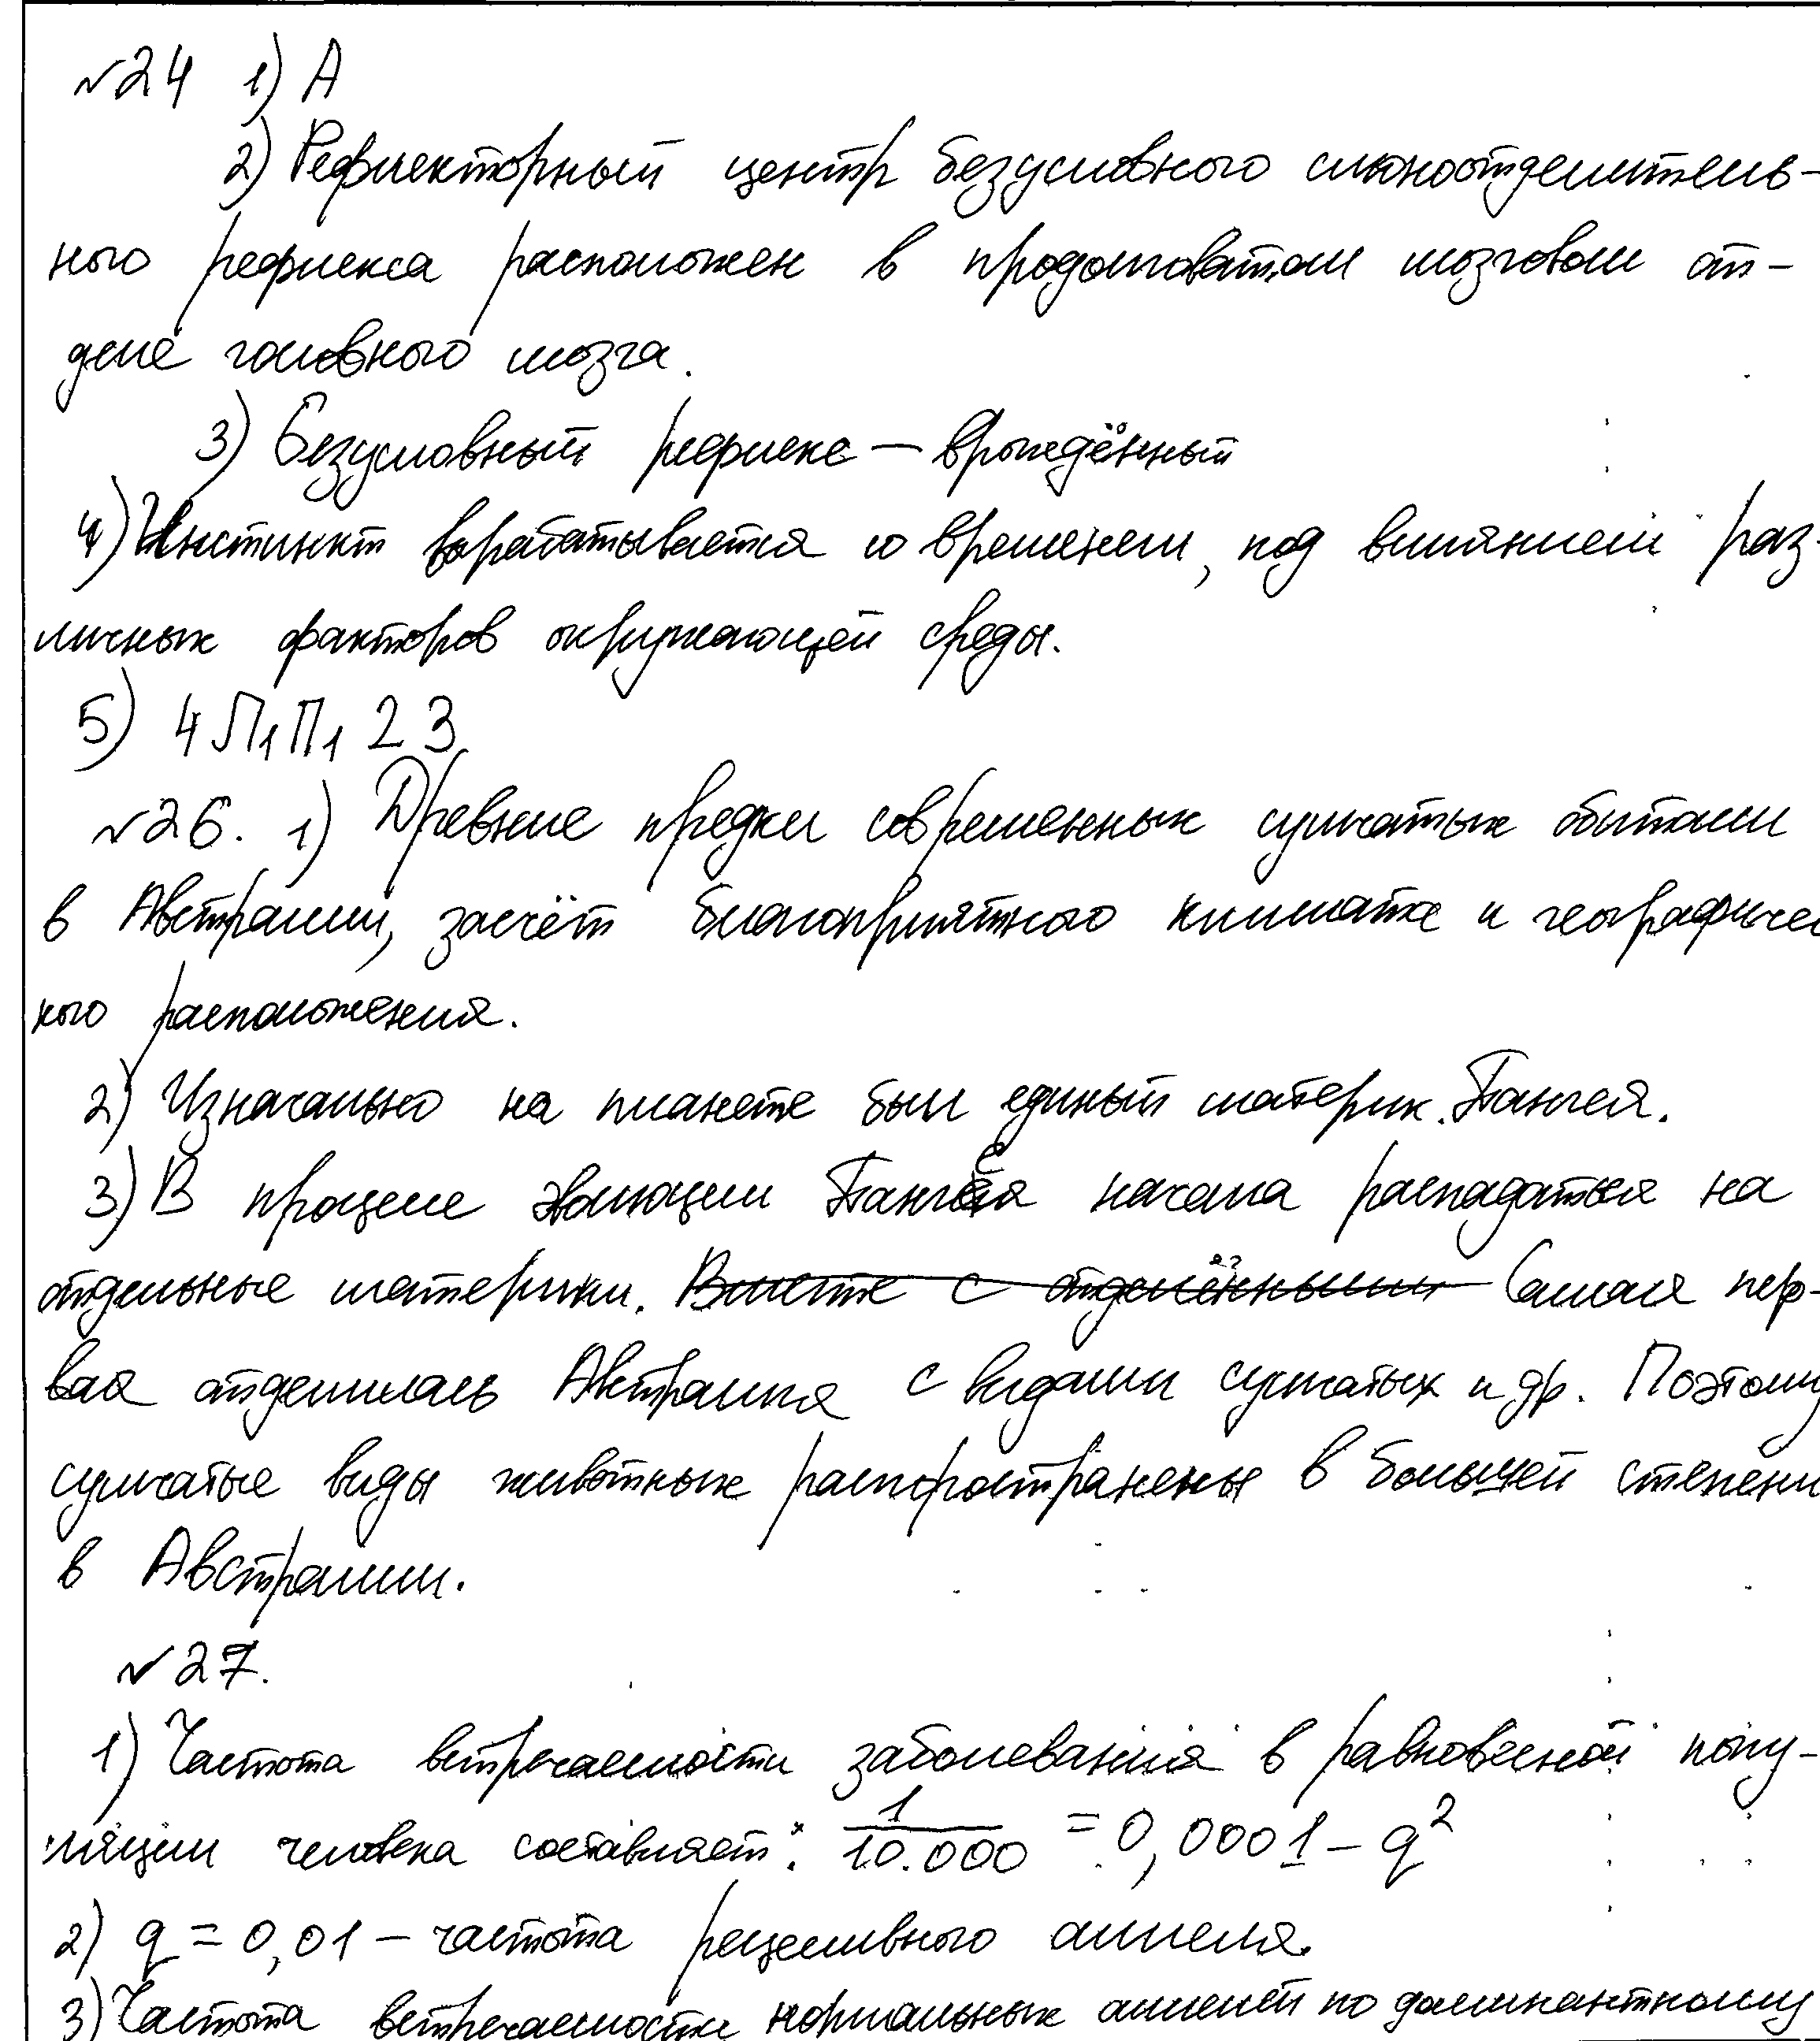 №24 1) А
2) Рефлекторный центр безусловного слюноотделитель-
ного рефлекса расположен в продолговатом мозговом от-
деле головного мозга.
3) Безусловный рефлекс — врождённый
4) Инстинкт ворабатывается со временем, под влиянием раз-
личных факторов окружающей среды.
5) 4 Л1 П1 2 3
№26. 1) Древние предки современных сумчатых обитали
в Австралии, засчёт благоприятного климата и географичес
кого расположения.
2) Изначально на планете был единый материк. Пангея.
3) В процессе эволюции Пангея начала распадаться на
отдельные материки. Вместе с отделёнными Самая пер-
вая отделилась Австралия с видами сумчатых и др. Поэтому
сумчатые виды животных распространены в большей степени
в Австралии.
№27.
1) Частота встречаемости заболевания в равновесной попу-
ляции человека составляет: 1/10.000 = 0,0001 – q²
2) q = 0,01 – частота рецессивного аллеля.
3) Частота встречаемости нормальных аллелей по доминантному